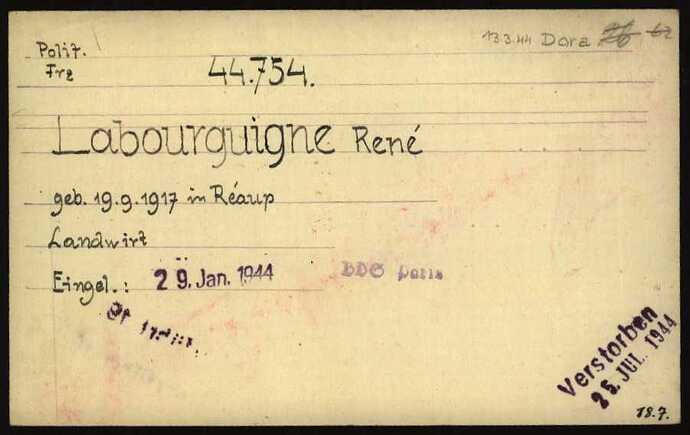 13.3.44 Dora
Polit.
Frz
44.754.
Labourguigne René
geb. 19.9.1917 in Réaup
Landwirt
Eingel.: 29. Jan. 1944 BDS Paris
Verstorben
25. JUL. 1944
18.7.